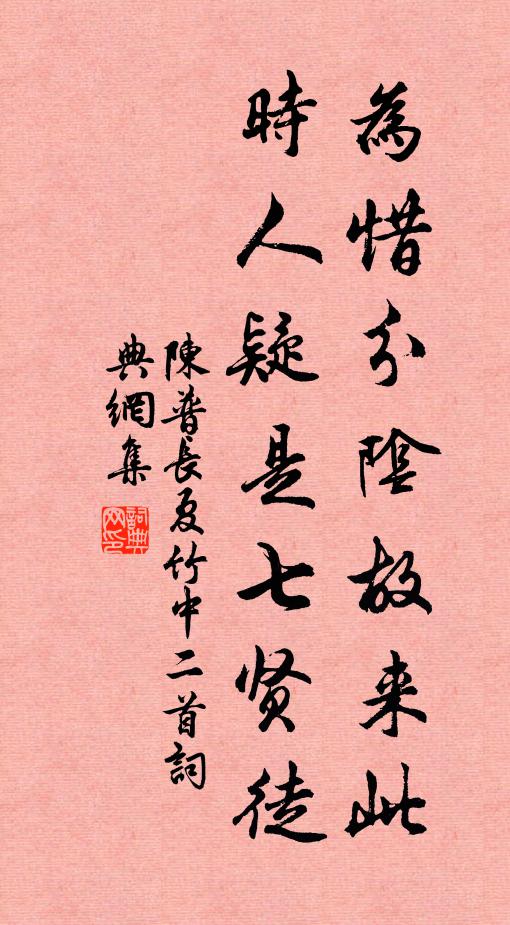 為惜分陰故来此
時人疑是七贤徒
陳普長夏竹中二首詞
典網集
詞典
网印